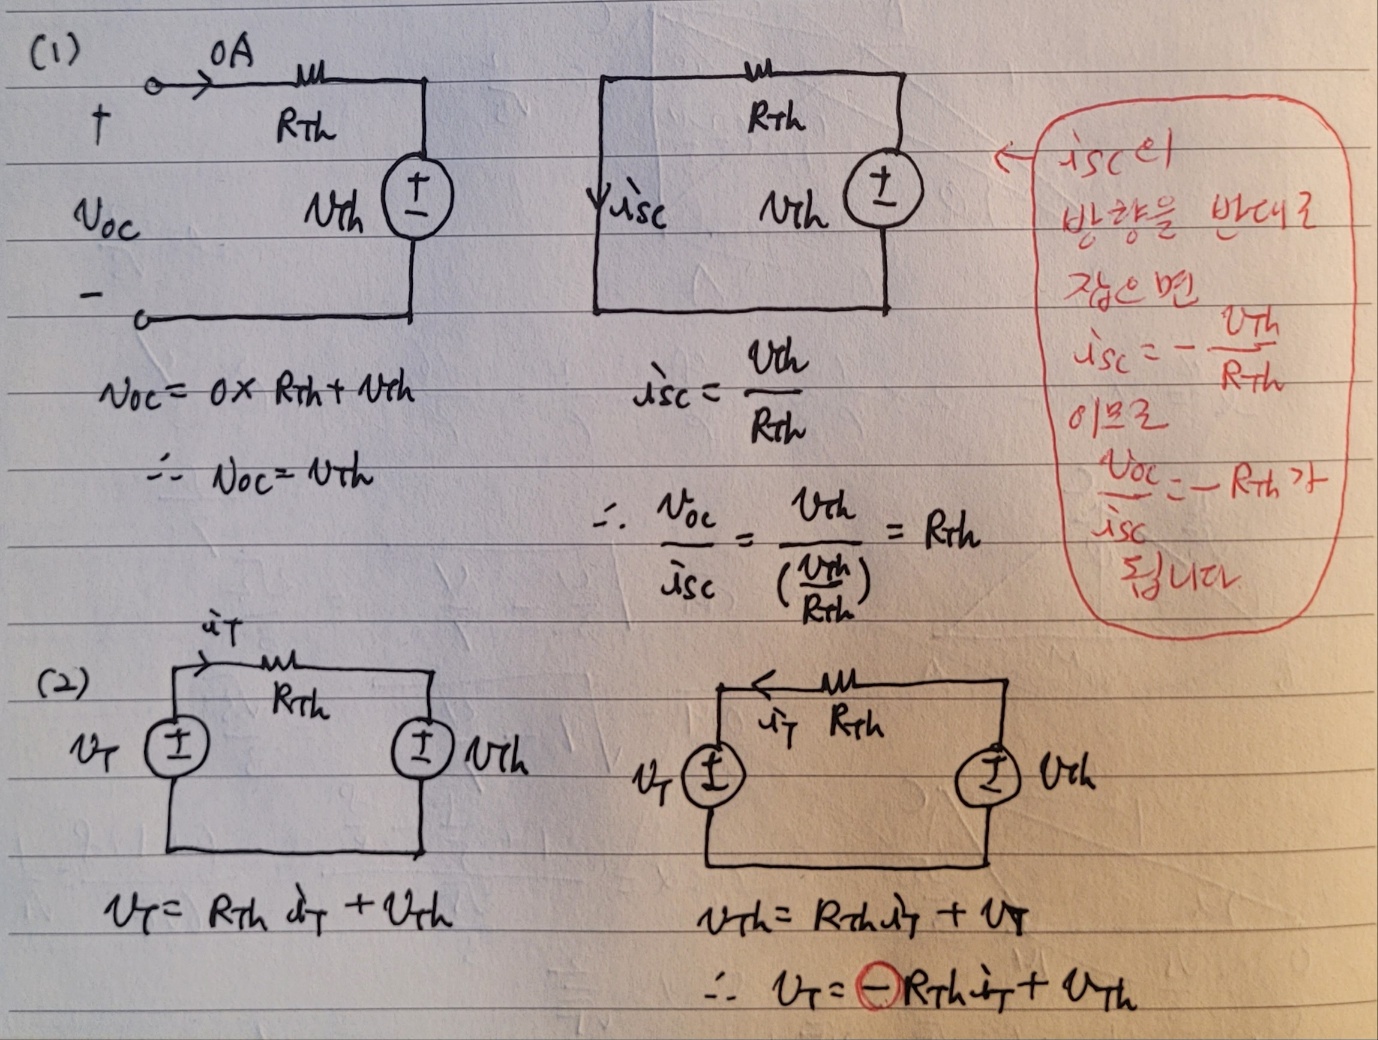 (1)
0A
+
RTh
VTh
Voc
-
RTh
isc
VTh
+
-
+
-
Voc = 0 × RTh + VTh
∴ Voc = VTh
isc = VTh / RTh
∴ Voc / isc = VTh / (VTh / RTh) = RTh
← isc의
방향을 반대로
잡으면
isc = - VTh / RTh
이므로
Voc / isc = - RTh가
됩니다
(2)
iT
RTh
VT
+
-
+
-
VTh
VT = RTh iT + VTh
iT RTh
VT
+
-
+
-
VTh
VTh = RTh iT + VT
∴ VT = - RTh iT + VTh